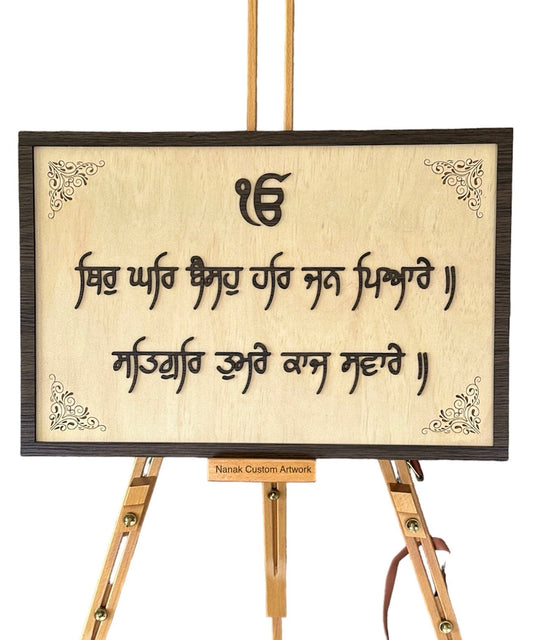 ੴ
ਥਿਰੁ ਘਰਿ ਬੈਸਹੁ ਹਰਿ ਜਨ ਪਿਆਰੇ ॥
ਸਤਿਗੁਰਿ ਤੁਮਰੇ ਕਾਜ ਸਵਾਰੇ ॥
Nanak Custom Artwork